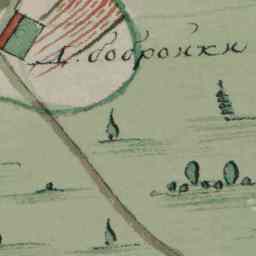 Д: бобройки